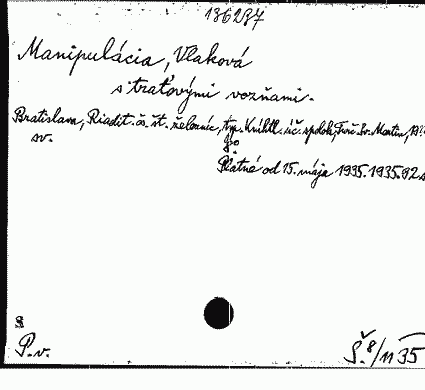 136237
Manipulácia, Vlaková
s traťovými vozňami.
Bratislava, Riadit. čs. št. železníc, typ. Kníhtl. úč. spolok, Turč. Sv. Martin,
sv. 8°
Platné od 15. mája 1935. 1935. 92 s
S
P. v. Š. 8/11 35